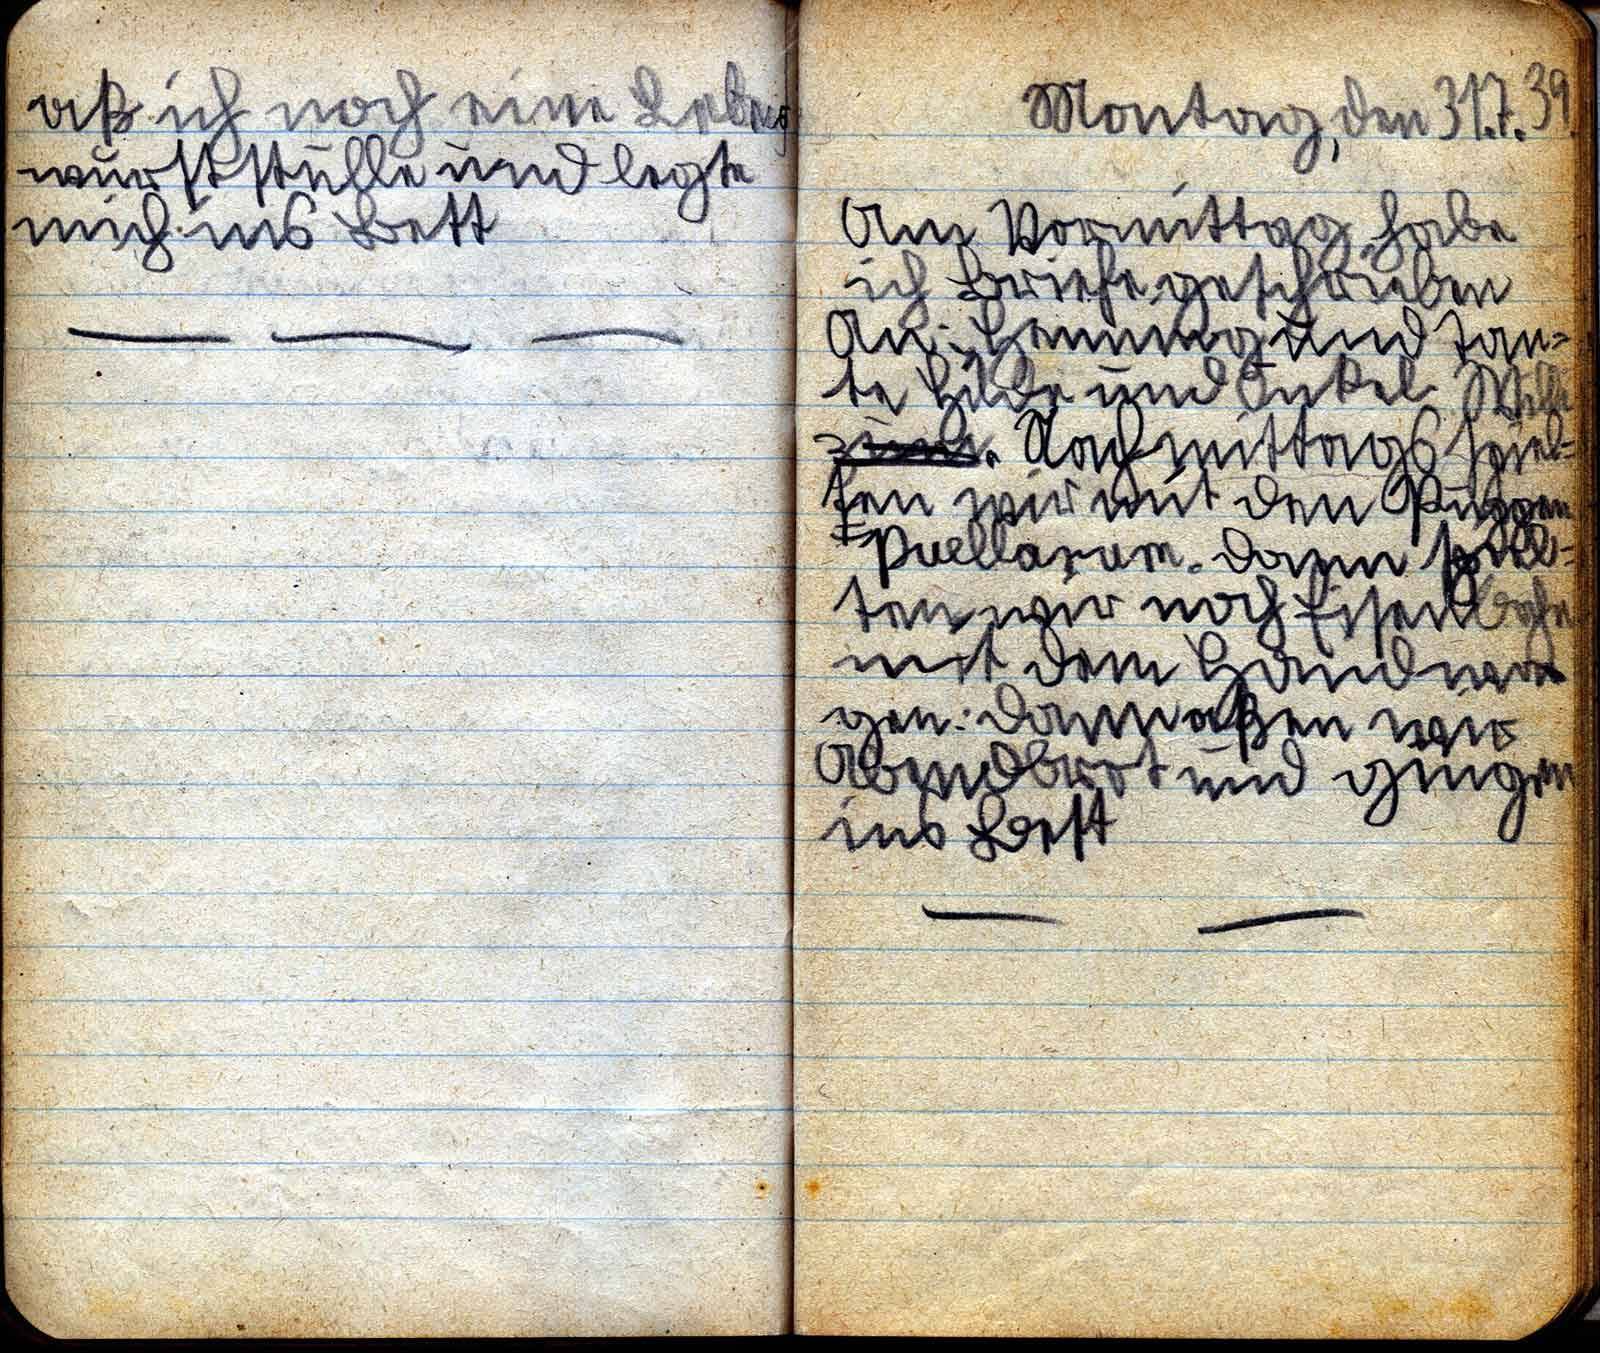 aß ich noch eine Leber
wurststulle und legte
mich ins Bett
Montag, den 31.7.39.
Am Vormittag habe
ich Briefe geschrieben
An: Henning und Tan=
te Hilde und Onkel Willi
Nachmittags spiel=
ten wir mit den Puppen
Puellarum. Dann spiel=
ten wir noch Eisenbahn
mit dem Handwa
gen. Dann aßen wir
Abendbrot und gingen
ins Bett